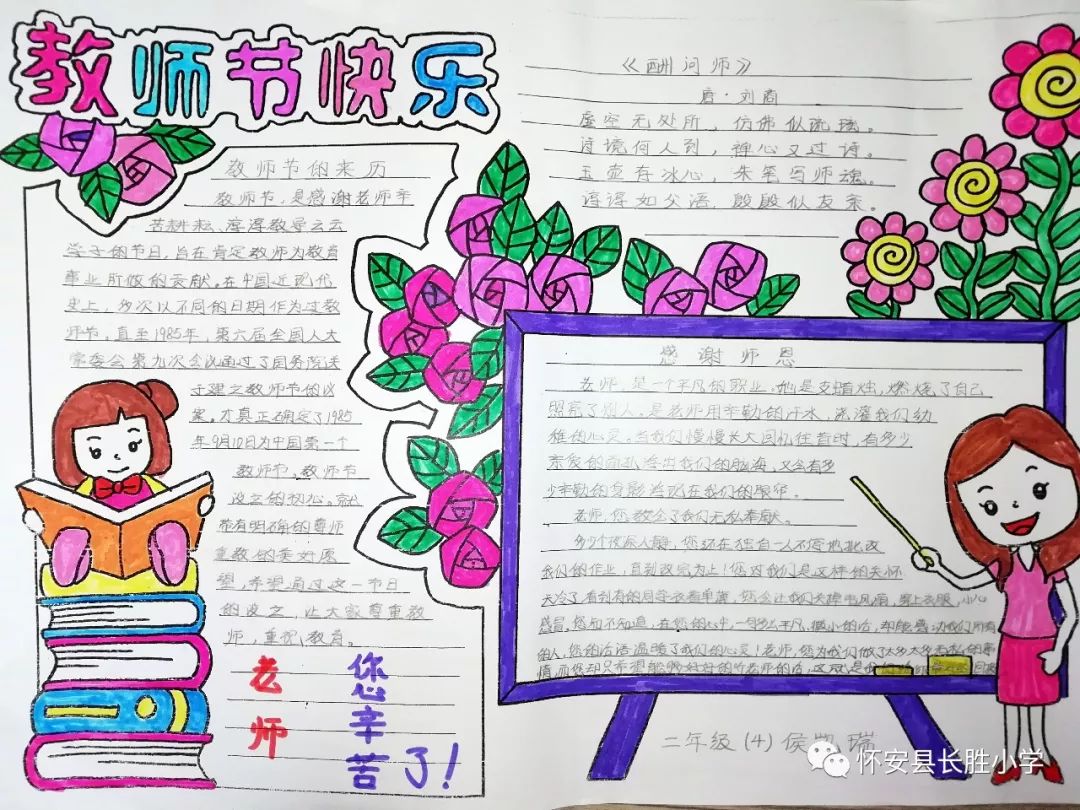 教师节快乐
教师节的来历
教师节,是感谢老师辛
苦耕耘、谆谆教导云云
学子的节日,旨在肯定教师为教育
事业所做的贡献。在中国近现代
史上,多次以不同的日期作为过教
师节,直至1985年,第六届全国人大
常委会第九次会议通过了国务院送
于建立教师节的议
案。才真正确定了1985
年9月10日为中国第一个
教师节。教师节
设立的初心。就
带有明确的尊师
重教的美好愿
望,希望通过这一节日
的设立,让大家尊重教
师,重视教育。
老师
您辛苦了!
《酬问师》
唐·刘商
虚空无处所,仿佛似琉璃。
诗境何人到,禅心又过诗。
玉壶存冰心,朱笔写师魂。
谆谆如父语,殷殷似友亲。
感谢师恩
老师,是一个平凡的职业。她是支蜡烛,燃烧了自己
照亮了别人,是老师用辛勤的汗水,浇灌我们幼
稚的心灵。当我们慢慢长大回忆往昔时,有多少
亲爱的面孔浮出我们的脑海,又会有多
少辛勤的身影浮现在我们的眼帘。
老师,您教会了我们无私奉献。
多少个夜深人静,您还在独自一人不停地批改
我们的作业,直到改完为止!您对我们是这样的关怀
天冷了,看到有的同学衣着单薄,您会让我们关掉电风扇,穿上衣服,小心
感冒。您知不知道,在您的心中,一句多么平凡、微小的话,却能感动我们所有
的人,您的话语温暖了我们的心灵!老师,您为我们做了太多太多有益的事
情,而您却只希望能够好好的听老师的话,这
二年级(4)侯凯瑞
怀安县长胜小学